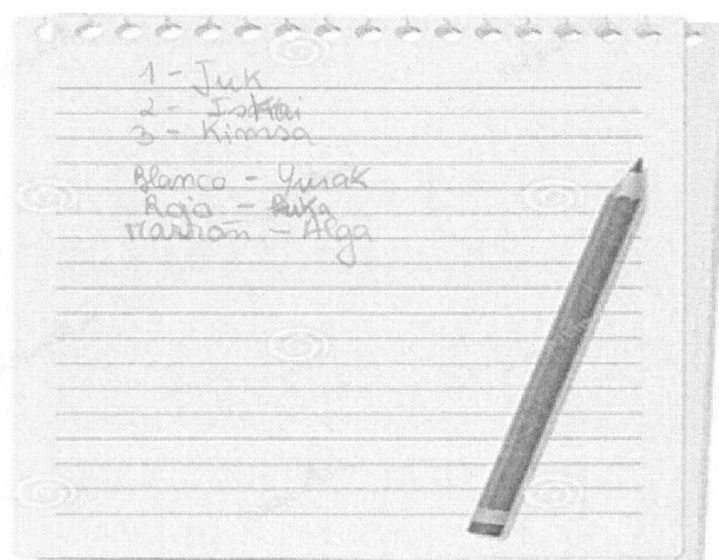 1 - Juk
2 - Iskai
3 - Kimsa
Blanco - Yurak
Rojo - Puka
Marrón - Alga